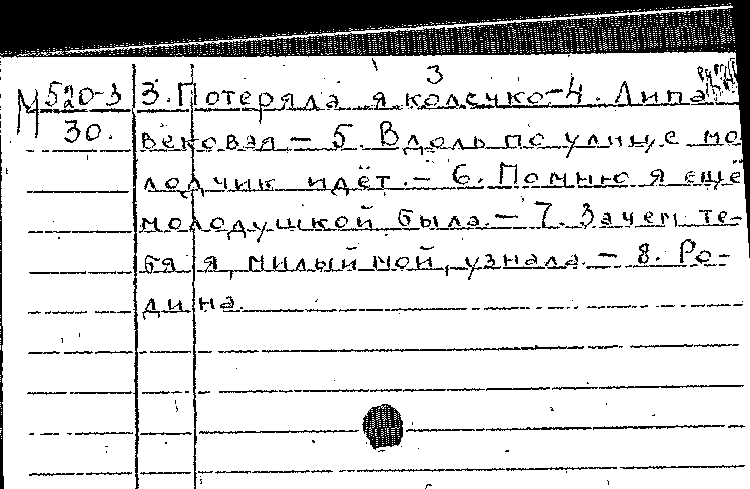 3
М 520-3 3. Потеряла я колечко-4. Липа
30. вековая - 5. Вдоль по улице мо
лодчик идёт. - 6. Помню я ещё
молодушкой была. - 7. Зачем те-
бя я, милый мой, узнала. - 8. Ро-
дина.